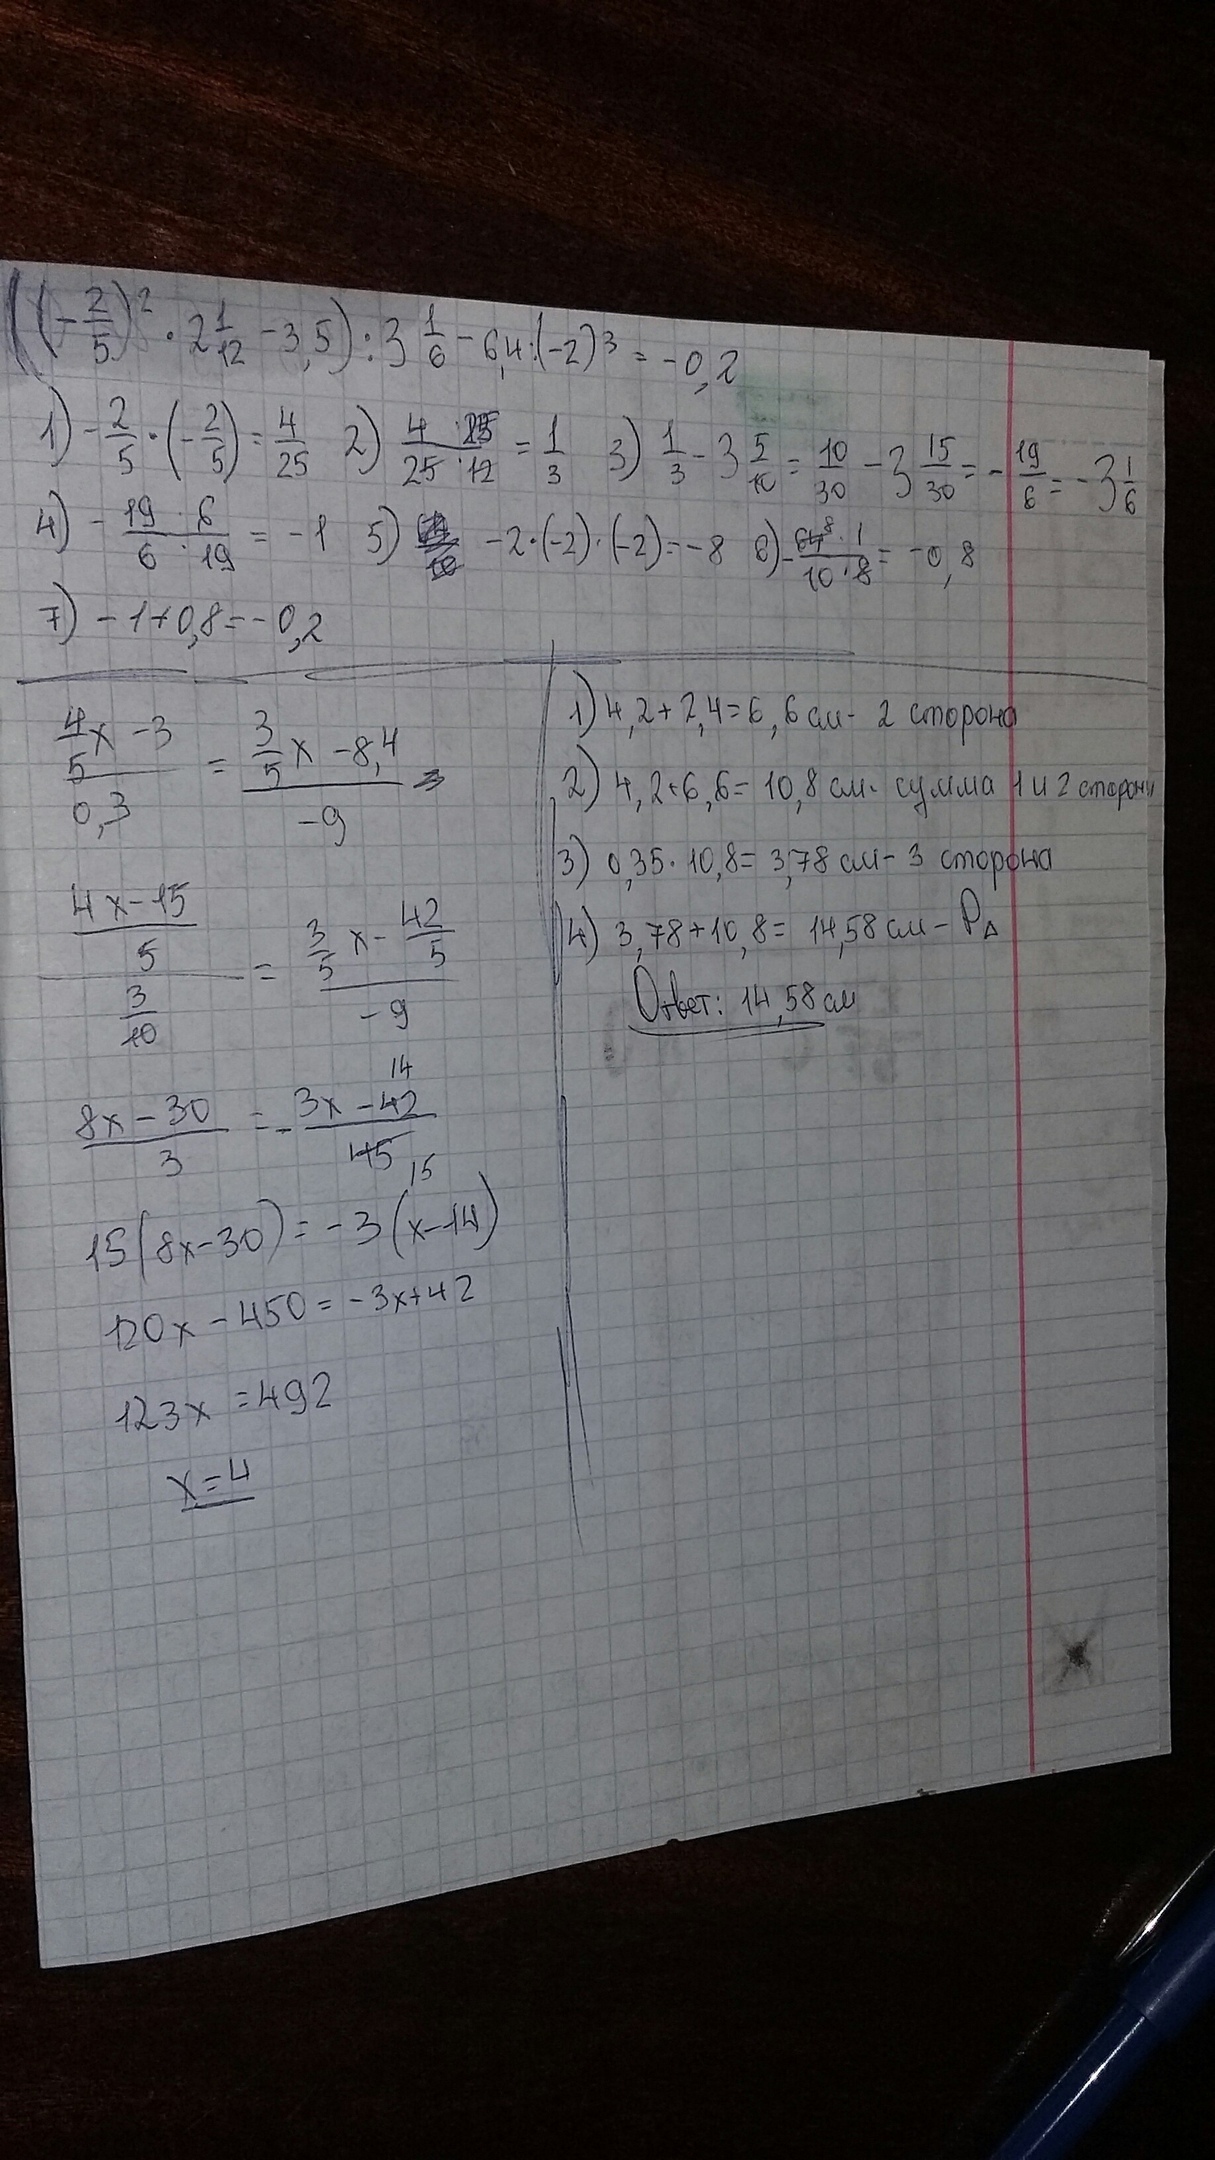 ((-2/5)² · 2 1/12 - 3,5) : 3 1/6 - 6,4 : (-2)³ = -0,2
1) -2/5 · (-2/5) = 4/25 2) 4 · 25/25 · 12 = 1/3 3) 1/3 - 3 5/10 = 10/30 - 3 15/30 = -19/6 = -3 1/6
4) -19 · 6/6 · 19 = -1 5) -2·(-2)·(-2) = -8 6) -64 8 · 1/10 · 8 = -0,8
7) -1+0,8=-0,2
4/5x - 3/0,3 = 3/5x - 8,4/-9
4x-15/5/3/10 = 3/5x - 42/5/-9
8x-30/3 = -3x-42 14/45 15
15(8x-30) = -3(x-14)
120x - 450 = -3x+42
123x = 492
x=4
1) 4,2+2,4=6,6 см - 2 сторона
2) 4,2+6,6= 10,8 см - сумма 1 и 2 стороны
3) 0,35 · 10,8= 3,78 см - 3 сторона
4) 3,78+10,8= 14,58 см - P∆
Ответ: 14,58 см